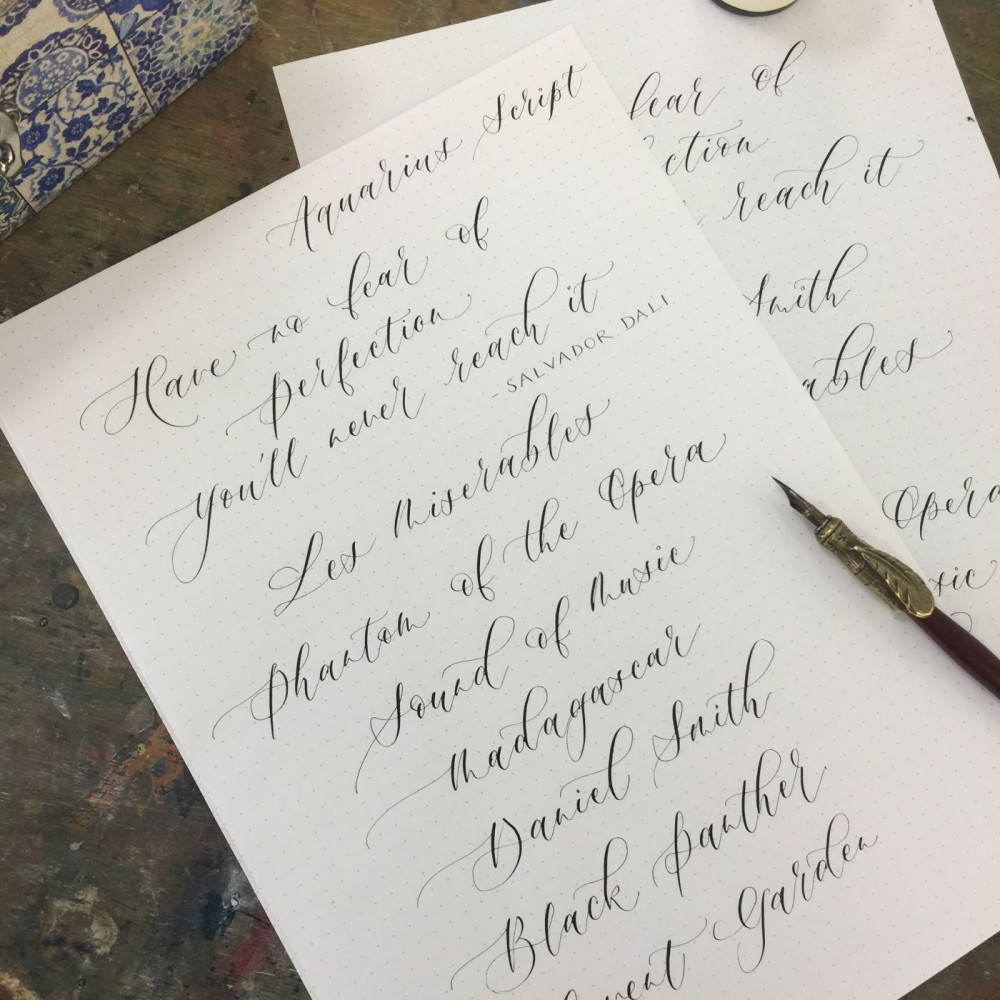 Aquarius Script
Have no fear of
perfection
you'll never reach it
- SALVADOR DALI
Les Miserables
Phantom of the Opera
Sound of Music
Madagascar
Daniel Smith
Black Panther
Garden
fear of
ction
reach it
Smith
ables
Opera
sic